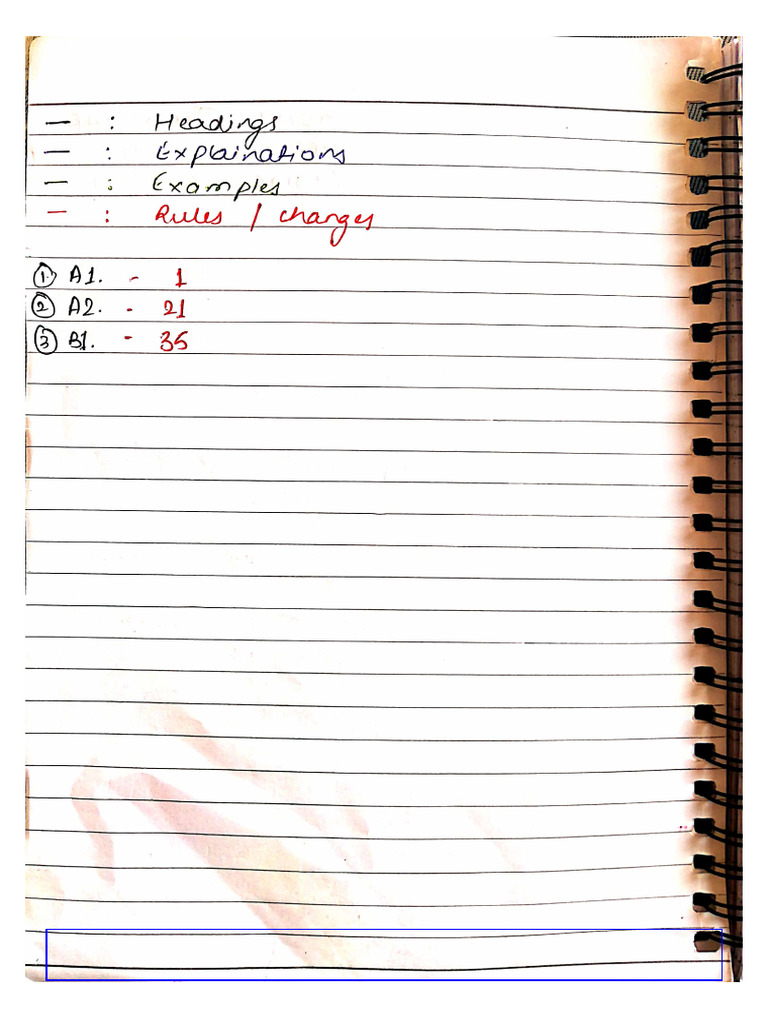 — : Headings
— : Explainations
— : Examples
— : Rules / changes
① A1. - 1
② A2. - 21
③ B1. - 35